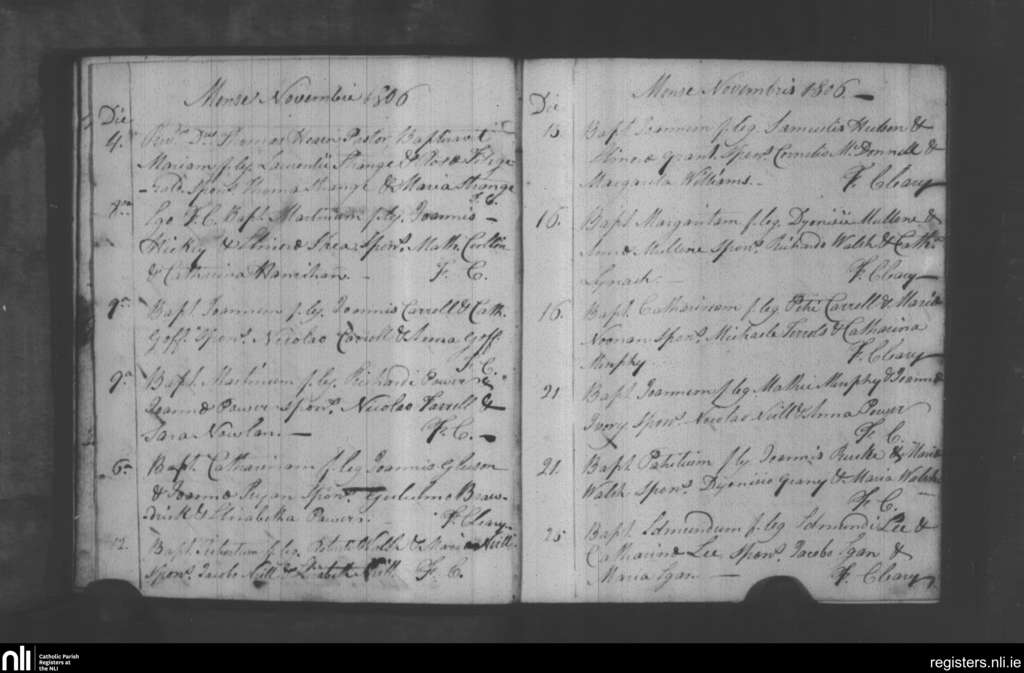 Mense Novembris 1806
Die
4. Revd. Dnus Thomas Hearn Pastor Baptizavit
Mariam f. leg. Laurentii Strange &
Spons. Thoma Strange & Maria Strange
F. C.
8va Ego F. C. Bapt. Martinum f. leg. Joannis
Hickey & Shea Spons. Math.
& Catharina Hanrihan. — F. C.
9a Bapt. Joannem f. leg. Joannis Carroll & Cath.
Goff. Spons. Nicolao Carroll & Anna Goff.
F. C.
9a Bapt. Martinum f. leg. Richardi Power &
Joannæ Power spons. Nicolao Farrell &
Sara Nowlan. — F. C. —
6a Bapt. Catharinam f. leg. Joannis Gleeson
& Joannæ Ryan Spons. Gulielmo Brawd-
& Elisabetha Power. F. Cleary
12. Bapt. f. leg. Roberti Walsh & Maria Neill
Spons. Jacobo Neill & Neill. F. C.
Mense Novembris 1806. —
Die
15 Bapt. Joannem f. leg. Samuelis Hudson &
Grant. Spons. Cornelio McDonnell &
Margarita Williams. — F. Cleary
16. Bapt. Margaritam f. leg. Dyonisii Mullene &
Annæ Mullene Spons. Richardo Walsh & Cath.
Lynach. — F. Cleary
16. Bapt. Catharinam f. leg. Petri Carroll & Mariæ
Noonan Spons. Michaele & Catharina
Murphy F. Cleary
21 Bapt. Joannem f. leg. Mathei Murphy & Joannæ
Ivory Spons. Nicolao Neill & Anna Power
F. C.
21. Bapt. Patritium f. leg. Joannis & Mariæ
Walsh. Spons. Dyonisio Grany & Maria Walsh
F. C.
25 Bapt. Edmundum f. leg. Edmundi Lee &
Catharinæ Lee Spons. Jacobo Egan &
Maria Egan — F. Cleary
nli Catholic Parish
Registers at
the NLI
registers.nli.ie